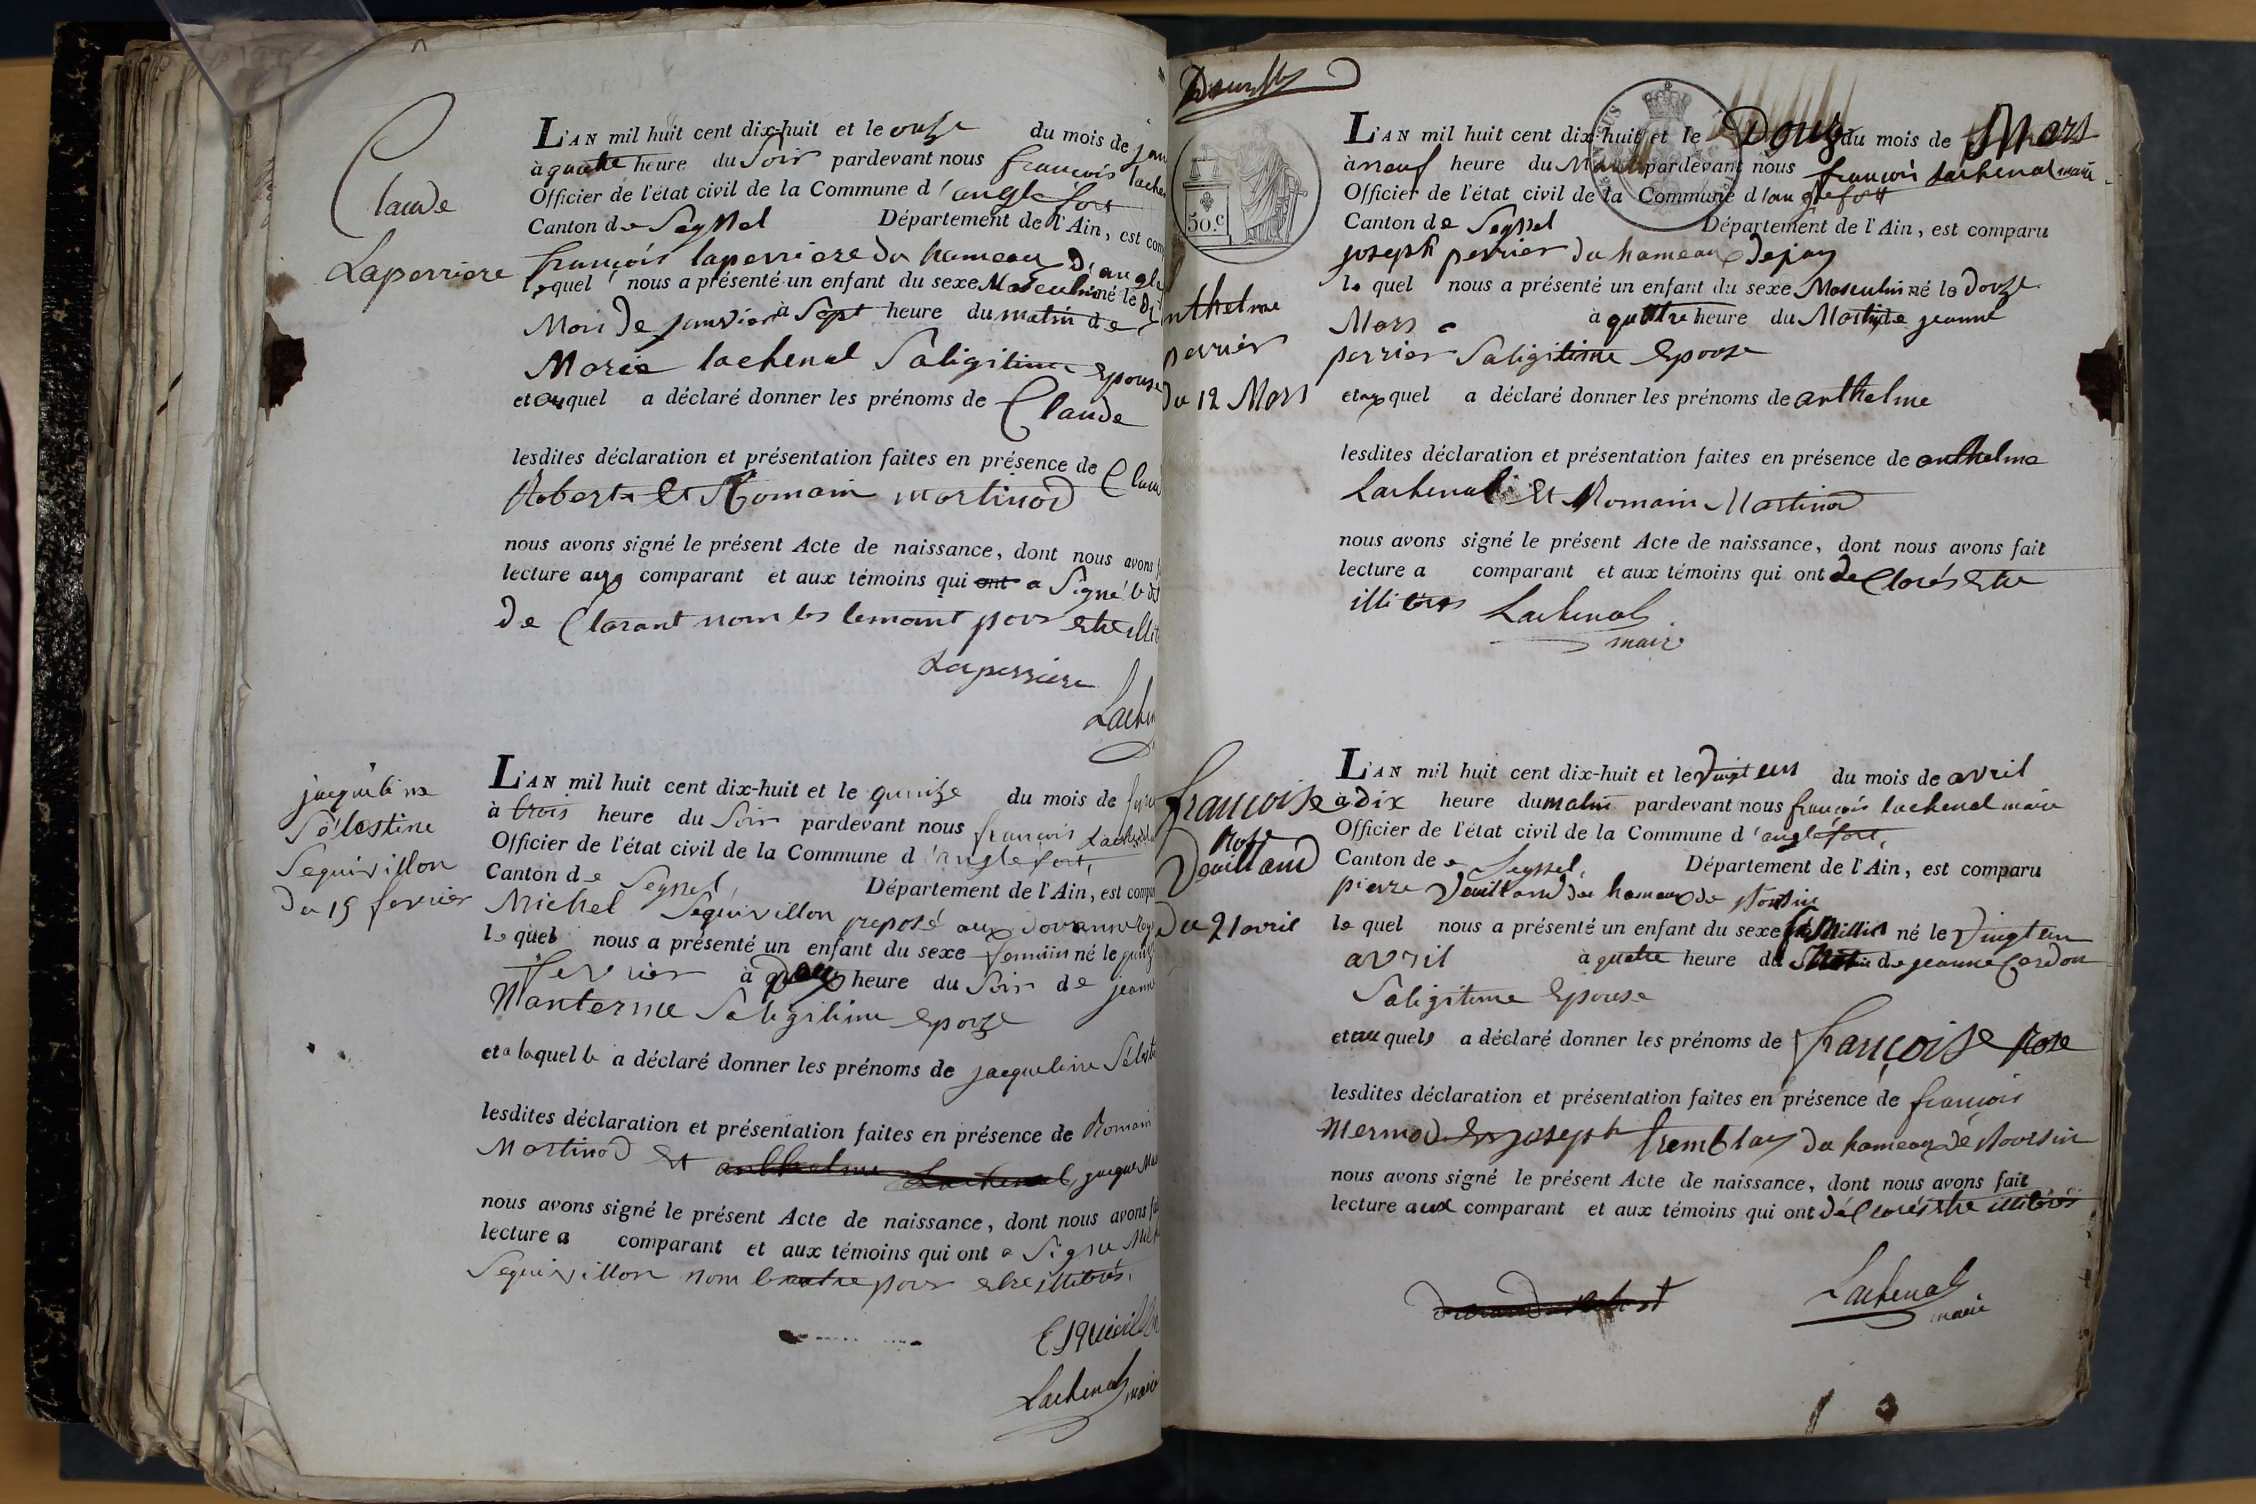 Claude
Laperriere
L'AN mil huit cent dix-huit et le onze du mois de jan
à quatre heure du Soir pardevant nous françois lachen
Officier de l'état civil de la Commune d'anglefort
Canton de Seyssel Département de l'Ain, est com
françois laperriere du hameau D'angle
lequel nous a présenté un enfant du sexe Masculin né le
Mois de janvier à Sept heure du matin de
Marie lachenal Saligitime Epouse
et auquel a déclaré donner les prénoms de Claude
lesdites déclaration et présentation faites en présence de Claud
Robert Et Romain martinod
nous avons signé le présent Acte de naissance, dont nous avons f
lecture aux comparant et aux témoins qui ont a Signé le dit
de Clarant nom les temoint pour Etre illit
Laperriere
Lachen
jaqueline
Sélestine
Sequivillon
Du 15 fevrier
L'AN mil huit cent dix-huit et le quinze du mois de fevr
à trois heure du Soir pardevant nous françois Lachenal
Officier de l'état civil de la Commune d'anglefort,
Canton de Seyssel, Département de l'Ain, est compa
Michel Sequivillon preposé aux Douanne Roy
lequel nous a présenté un enfant du sexe feminin né le quinze
fevrier à deux heure du Soir de jeann
Manterme Saligitime Epouze
et a laquelle a déclaré donner les prénoms de jacqueline Sélesti
lesdites déclaration et présentation faites en présence de Romain
Martinod Et anthelme Lachenal, jaque Ma
nous avons signé le présent Acte de naissance, dont nous avons fai
lecture a comparant et aux témoins qui ont a Signé Mich
Sequivillon nom lautre pour etre illiteres.
Esquivillon
Lachenal maire
50.c
L'AN mil huit cent dix-huit et le Douze du mois de Mars
à neuf heure du Matin pardevant nous françois Lachenal maire
Officier de l'état civil de la Commune d'anglefort
Canton de Seyssel Département de l'Ain, est comparu
joseph perrier du hameau dejay
le quel nous a présenté un enfant du sexe Masculin né le Douze
Mars à quattre heure du Matin de jeanne
perrier Saligitime Epouse
et auquel a déclaré donner les prénoms de anthelme
lesdites déclaration et présentation faites en présence de anthelme
Lachenal Et Romain Martinod
nous avons signé le présent Acte de naissance, dont nous avons fait
lecture a comparant et aux témoins qui ont de Clarés Etre
illiteres Lachenal
maire
nthelme
perrier
Du 12 Mars
françoise
Rose
Vouilland
Du 21 avril
L'AN mil huit cent dix-huit et le Vingt un du mois de avril
à dix heure du matin pardevant nous françois lachenal maire
Officier de l'état civil de la Commune d'anglefort,
Canton de Seyssel, Département de l'Ain, est comparu
pierre Vouilland du hameau de
le quel nous a présenté un enfant du sexe né le Vingt un
avril à quatre heure du Matin de jeanne Cardon
Saligitime Epouse
et au quels a déclaré donner les prénoms de françoise Rose
lesdites déclaration et présentation faites en présence de françois
Mermod Et joseph tremblay du hameau de
nous avons signé le présent Acte de naissance, dont nous avons fait
lecture aux comparant et aux témoins qui ont dé Clarés Etre illiteres
Lachenal
maire